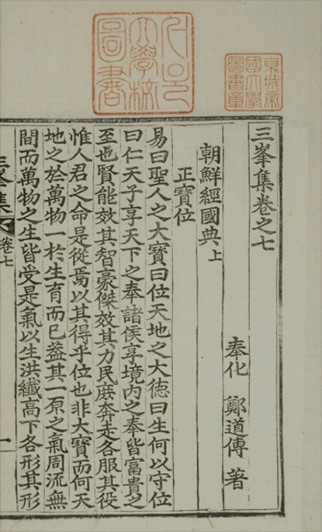 三峯集卷之七
奉化 鄭道傳 著
朝鮮經國典上
正寶位
易曰聖人之大寶曰位天地之大德曰生何以守位
曰仁天子享天下之奉諸侯享境内之奉皆富貴之
至也賢能效其智豪傑效其力民庶奔走各服其役
惟人君之命是從焉以其得乎位也非大寶而何天
地之於萬物一於生育而已盖其一原之氣周流無
間而萬物之生皆受是氣以生洪纖高下各形其形
三峯集
卷七
一